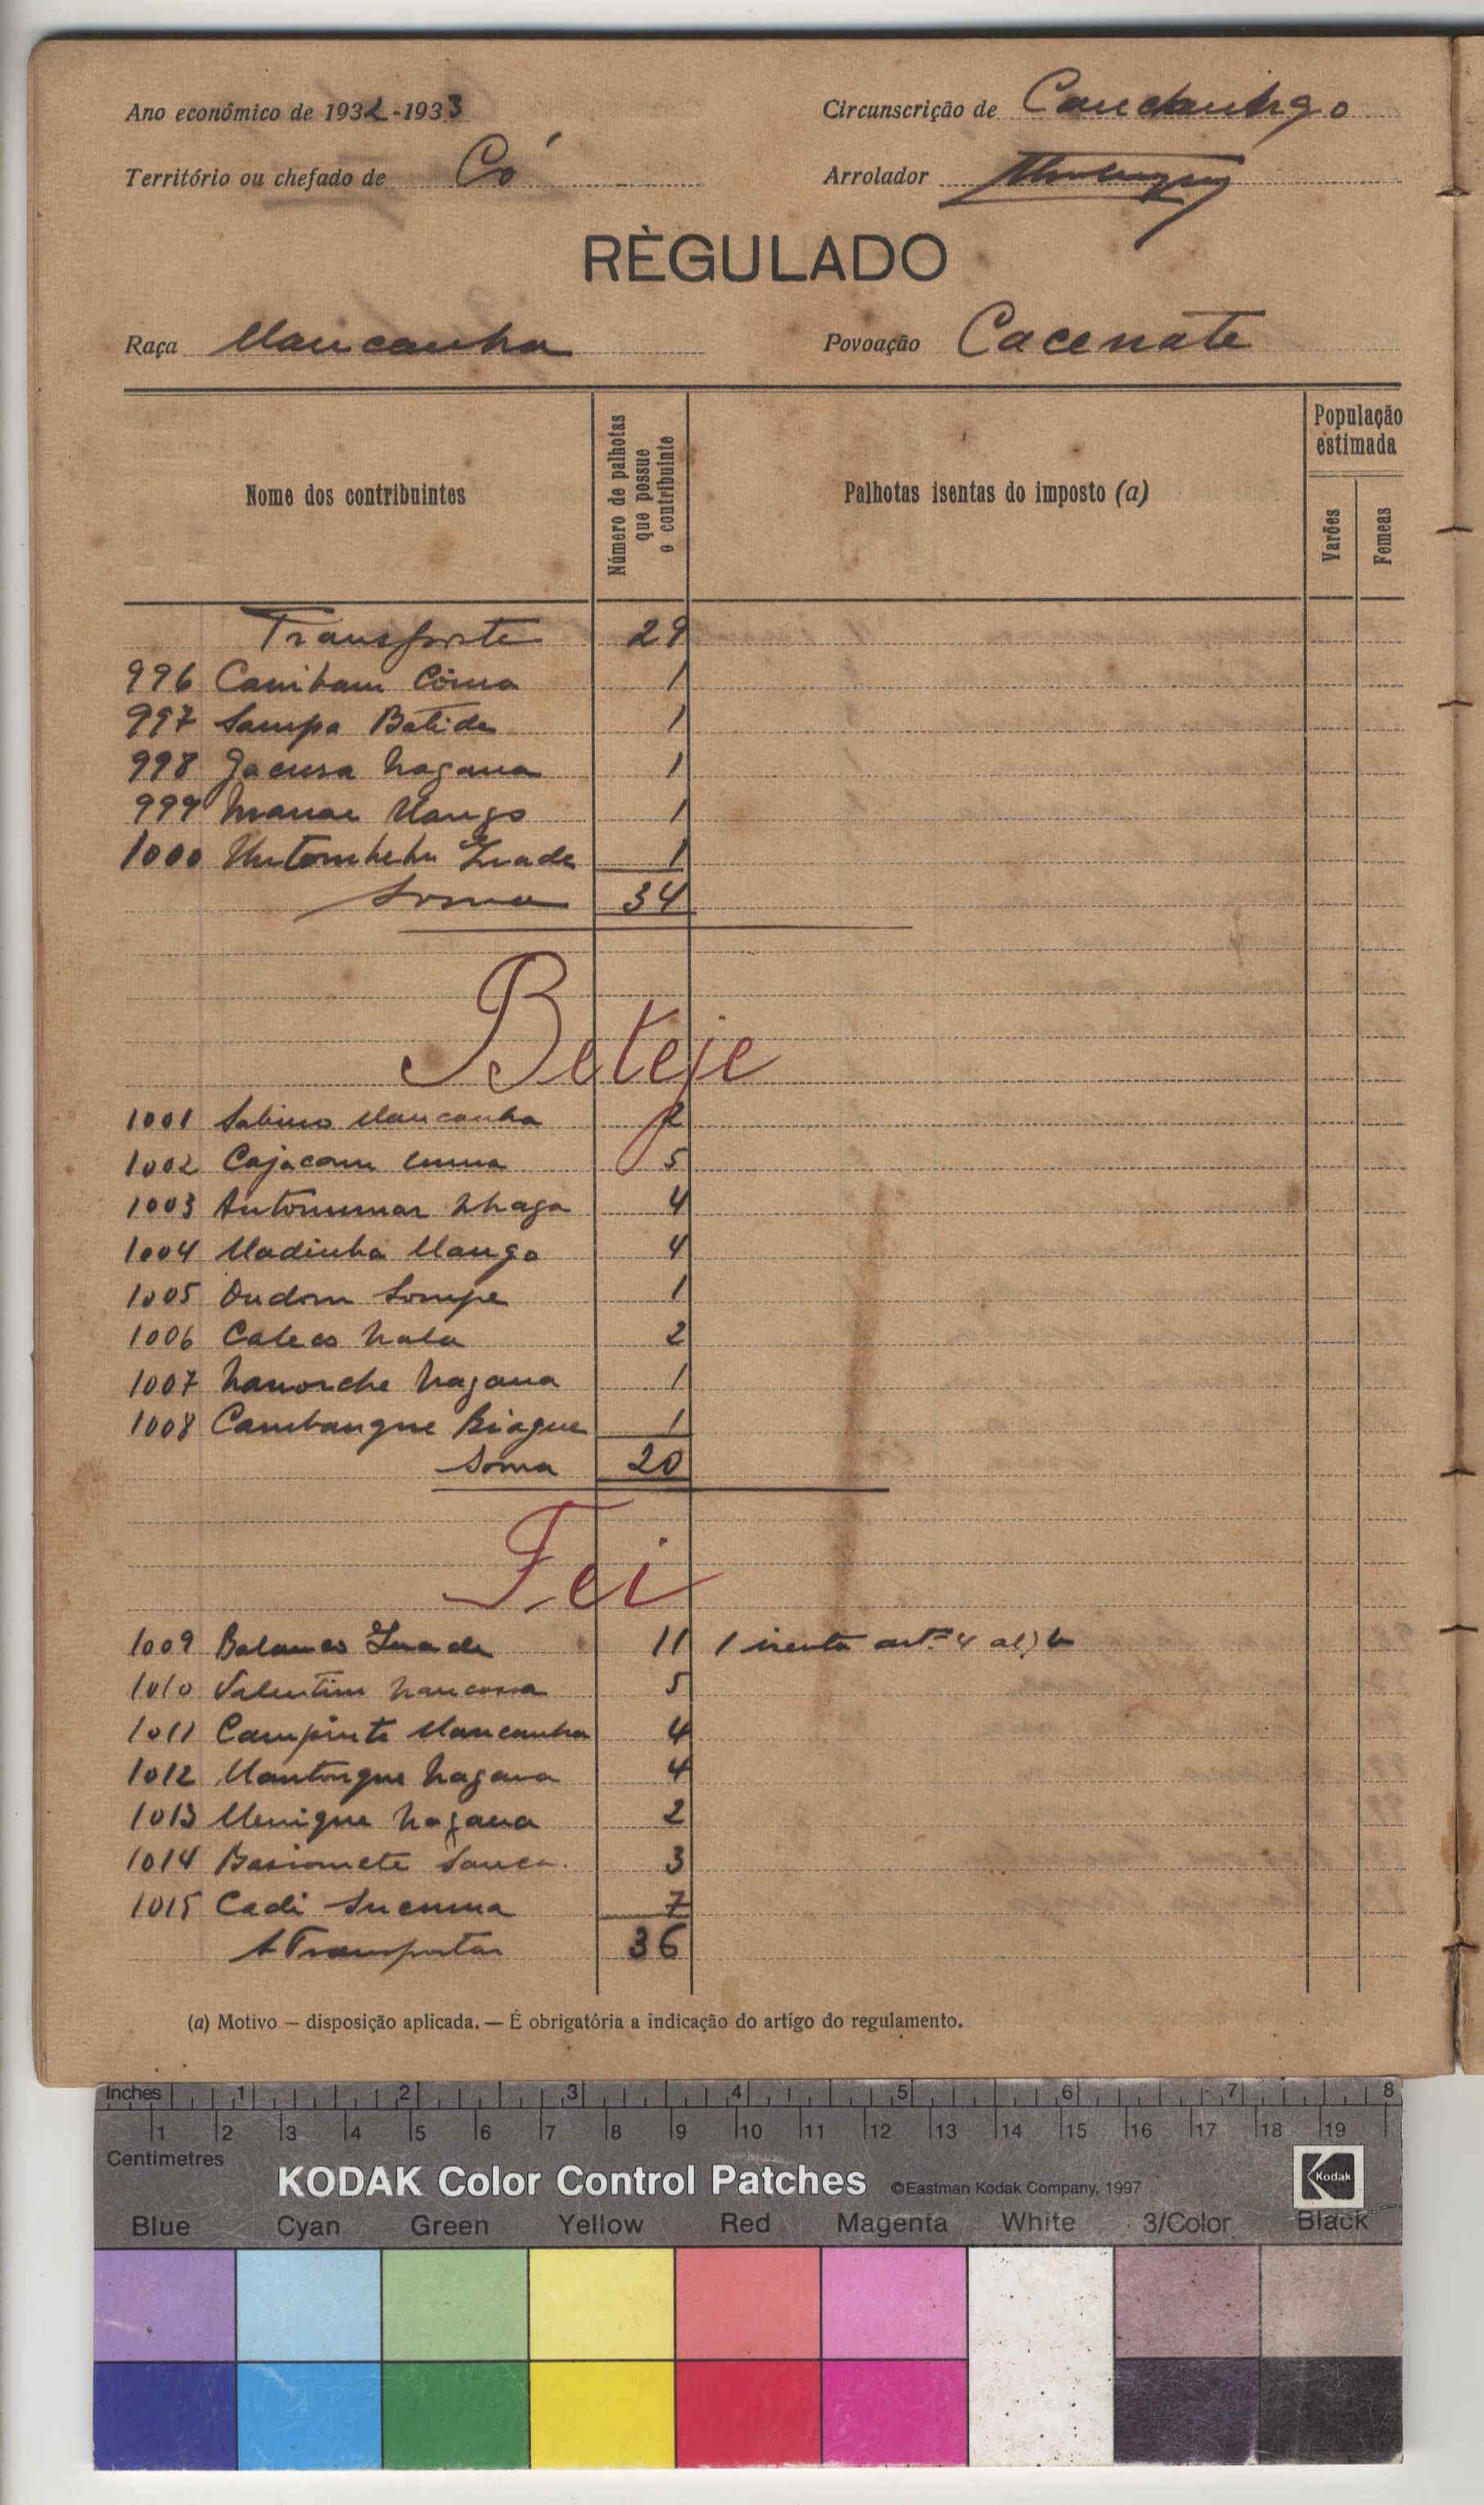 Ano económico de 1932-1933
Circunscrição de
Território ou chefado de Có
Arrolador
RÈGULADO
Raça Mancanha
Povoação Cacenate
Nome dos contribuintes
Número de palhotas que possue o contribuinte
Palhotas isentas do imposto (a)
População estimada
Varões
Femeas
Transporte 29
996 1
997 Sampa Batida 1
998 Jacusa Nagana 1
999 Mango 1
1000 1
Soma 34
Beteje
1001 Sabino Mancanha 2
1002 5
1003 4
1004 Madinha Mango 4
1005 Ondom Sompe 1
1006 Caleco Nala 2
1007 Nanorche Nagana 1
1008 Cambangue Biague 1
Soma 20
Fei
1009 11 1 isenta artº 4 al) b
1010 Valentim 5
1011 Campinte Mancanha 4
1012 Mantongue Nagana 4
1013 Menigue Nagana 2
1014 3
1015 Cadi 7
A Transportar 36
(a) Motivo — disposição aplicada. — É obrigatória a indicação do artigo do regulamento.
Inches 1 2 3 4 5 6 7 8
1 2 3 4 5 6 7 8 9 10 11 12 13 14 15 16 17 18 19
Centimetres
KODAK Color Control Patches ©Eastman Kodak Company, 1997 Kodak
Blue Cyan Green Yellow Red Magenta White 3/Color Black